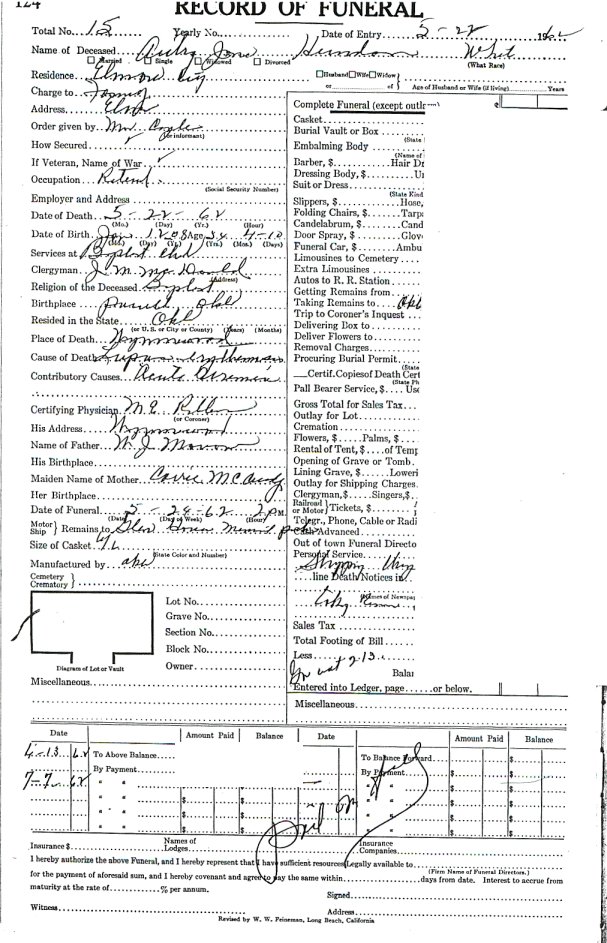 124
RECORD OF FUNERAL
Total No. 15 Yearly No. Date of Entry 5-22 1962
Name of Deceased Jane
Married Single Widowed Divorced (What Race)
Residence Elmore City Husband Wife Widow
or of Age of Husband or Wife (if living) Years
Charge to Family
Address
Order given by Mr.
(or informant)
How Secured
If Veteran, Name of War
Occupation Retired
(Social Security Number)
Employer and Address
Date of Death 5-22-62
(Mo.) (Day) (Yr.) (Hour)
Date of Birth Jan 12 08 Age 54 4-10
(Mo.) (Day) (Yr.) (Yrs.) (Mos.) (Days)
Services at Baptist Chd
Clergyman J. M. McDonald
(Address)
Religion of the Deceased Baptist
Birthplace Purcell Okl
Resided in the State Okl
(or U.S. or City or County) (Years) (Months)
Place of Death Wynnewood
Cause of Death Lupus erythema
Contributory Causes Acute Uremia
Certifying Physician M. E.
(or Coroner)
His Address Wynnewood
Name of Father W. J.
His Birthplace
Maiden Name of Mother
Her Birthplace
Date of Funeral 5-24-62 2 PM
(Date) (Day of Week) (Hour)
Motor Ship } Remains to Memorial Pk
Size of Casket
(State Color and Number)
Manufactured by
Cemetery Crematory }
Lot No.
Grave No.
Section No.
Block No.
Owner
Diagram of Lot or Vault
Miscellaneous
Complete Funeral (except outl
Casket
Burial Vault or Box
(State
Embalming Body
(Name of
Barber, $ Hair Dr
Dressing Body, $ U
Suit or Dress
(State Kind
Slippers, $ Hose,
Folding Chairs, $ Tarp
Candelabrum, $ Cand
Door Spray, $ Glov
Funeral Car, $ Ambu
Limousines to Cemetery
Extra Limousines
Autos to R. R. Station
Getting Remains from
Taking Remains to Okl
Trip to Coroner's Inquest
Delivering Box to
Deliver Flowers to
Removal Charges
Procuring Burial Permit
(State
Certif. Copies of Death Cert
(State Ph
Pall Bearer Service, $ Us
Gross Total for Sales Tax
Outlay for Lot
Cremation
Flowers, $ Palms, $
Rental of Tent, $ of Temp
Opening of Grave or Tomb
Lining Grave, $ Loweri
Outlay for Shipping Charges
Clergyman, $ Singers, $
Railroad or Motor } Tickets, $
Telegr., Phone, Cable or Radi
Cash Advanced
Out of town Funeral Directo
Personal Service
line Death Notices in
(Names of Newspap
Sales Tax
Total Footing of Bill
Less
213
Balan
Entered into Ledger, page or below.
Miscellaneous
Date Amount Paid Balance Date Amount Paid Balance
4-13 62 To Above Balance $ To Balance Forward $
7-7 62 By Payment By Payment
" " $ " " $
" " $ " " $
" " $ " " $
" " $ " " $
Paid
Insurance $ Names of Lodges Insurance Companies
I hereby authorize the above Funeral, and I hereby represent that I have sufficient resources Legally available to
(Firm Name of Funeral Directors.)
for the payment of aforesaid sum, and I hereby covenant and agree to pay the same within days from date. Interest to accrue from
maturity at the rate of % per annum.
Signed
Witness Address
Revised by W. W. Feineman, Long Beach, California